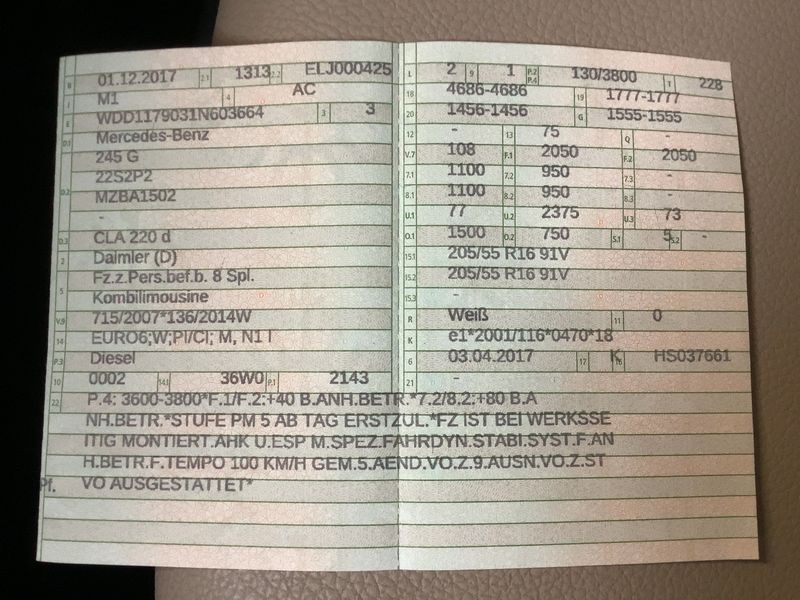 B 01.12.2017 2.1 1313 2.2 ELJ000425
J M1 4 AC
E WDD1179031N603664 3 3
D.1 Mercedes-Benz
245 G
22S2P2
D.2 MZBA1502
-
D.3 CLA 220 d
2 Daimler (D)
Fz.z.Pers.bef.b. 8 Spl.
5 Kombilimousine
V.9 715/2007*136/2014W
14 EURO6;W;PI/CI; M, N1 I
P.3 Diesel
10 0002 14.1 36W0 P.1 2143
L 2 9 1 P.2 P.4 130/3800 T 228
18 4686-4686 19 1777-1777
20 1456-1456 G 1555-1555
12 - 13 75 Q -
V.7 108 F.1 2050 F.2 2050
7.1 1100 7.2 950 7.3 -
8.1 1100 8.2 950 8.3 -
U.1 77 U.2 2375 U.3 73
O.1 1500 O.2 750 S.1 5 S.2 -
15.1 205/55 R16 91V
15.2 205/55 R16 91V
15.3 -
R Weiß 11 0
K e1*2001/116*0470*18
6 03.04.2017 17 K 16 HS037661
21 -
22 P.4: 3600-3800*F.1/F.2:+40 B.ANH.BETR.*7.2/8.2:+80 B.A
NH.BETR.*STUFE PM 5 AB TAG ERSTZUL.*FZ IST BEI WERKSSE
ITIG MONTIERT.AHK U.ESP M.SPEZ.FAHRDYN.STABI.SYST.F.AN
H.BETR.F.TEMPO 100 KM/H GEM.5.AEND.VO.Z.9.AUSN.VO.Z.ST
Pf. VO AUSGESTATTET*